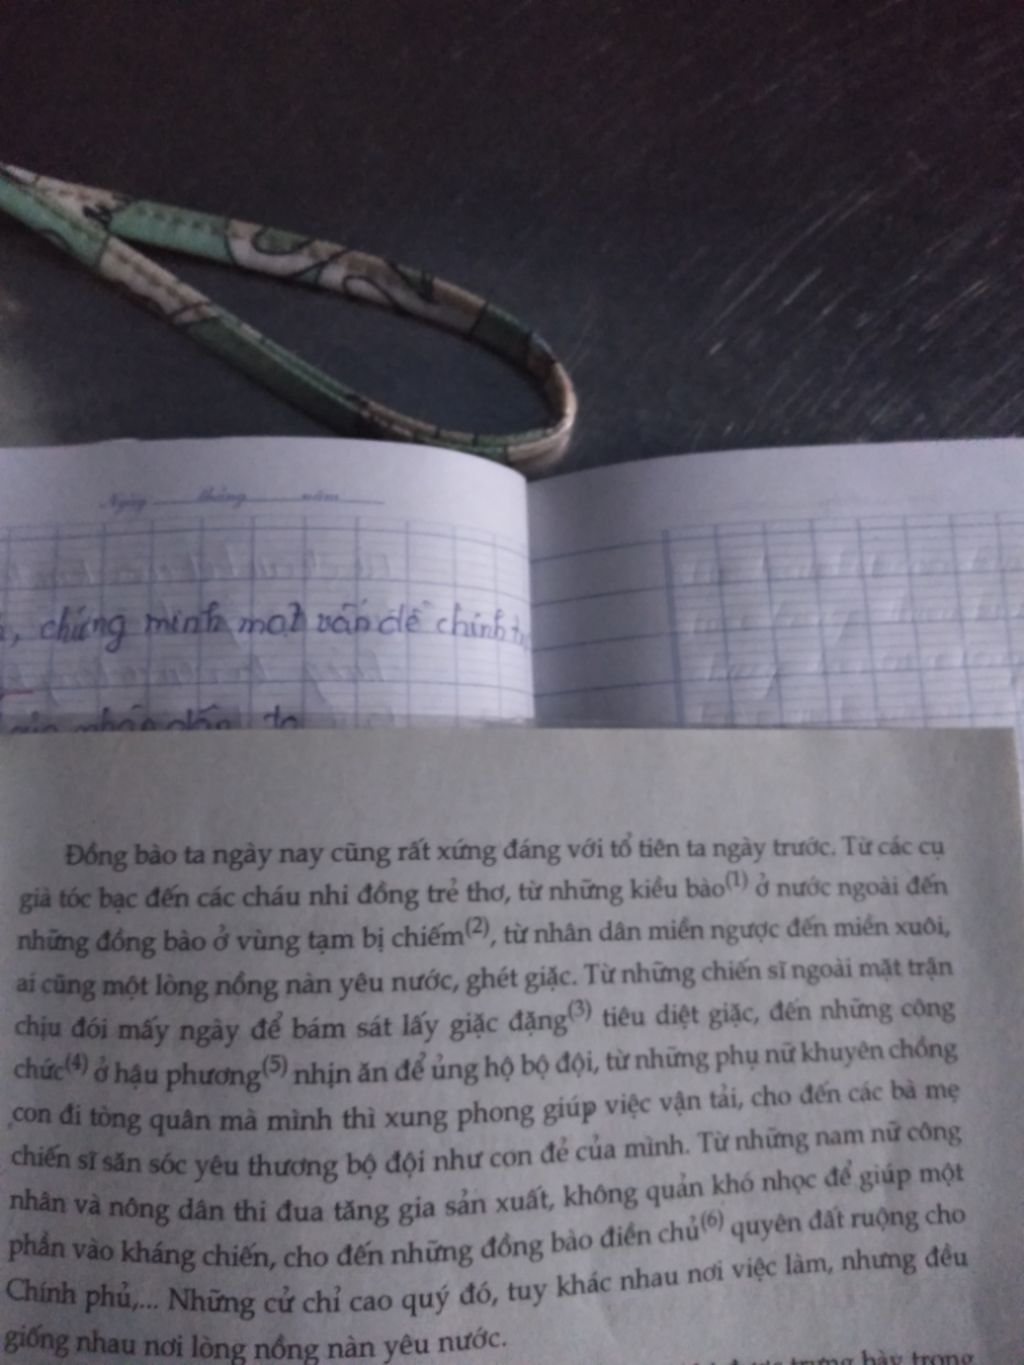 Ngày tháng năm
, chứng minh một vấn đề chính
Đồng bào ta ngày nay cũng rất xứng đáng với tổ tiên ta ngày trước. Từ các cụ
già tóc bạc đến các cháu nhi đồng trẻ thơ, từ những kiều bào(1) ở nước ngoài đến
những đồng bào ở vùng tạm bị chiếm(2), từ nhân dân miền ngược đến miền xuôi,
ai cũng một lòng nồng nàn yêu nước, ghét giặc. Từ những chiến sĩ ngoài mặt trận
chịu đói mấy ngày để bám sát lấy giặc đặng(3) tiêu diệt giặc, đến những công
chức(4) ở hậu phương(5) nhịn ăn để ủng hộ bộ đội, từ những phụ nữ khuyên chồng
con đi tòng quân mà mình thì xung phong giúp việc vận tải, cho đến các bà mẹ
chiến sĩ săn sóc yêu thương bộ đội như con đẻ của mình. Từ những nam nữ công
nhân và nông dân thi đua tăng gia sản xuất, không quản khó nhọc để giúp một
phần vào kháng chiến, cho đến những đồng bào điền chủ(6) quyên đất ruộng cho
Chính phủ,... Những cử chỉ cao quý đó, tuy khác nhau nơi việc làm, nhưng đều
giống nhau nơi lòng nồng nàn yêu nước.
bày trong